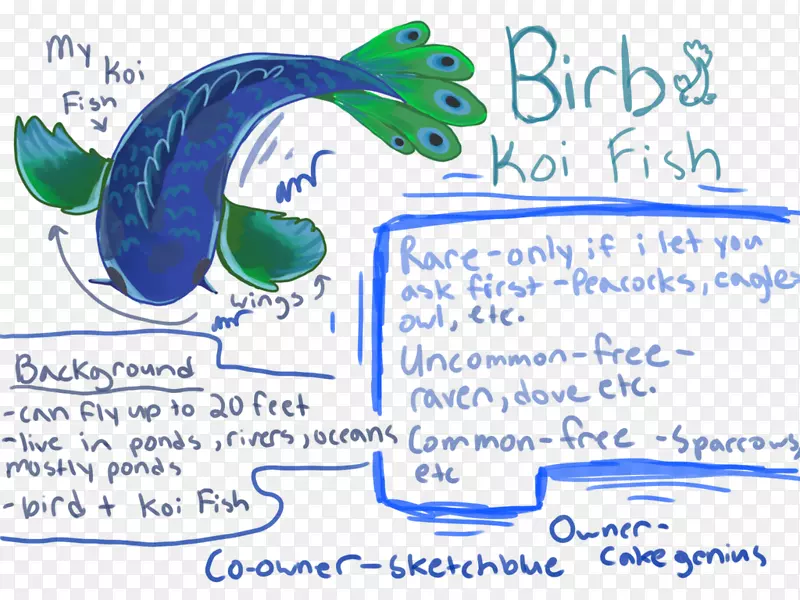 My
Koi
Fish
Birb
Koi Fish
wings
Rare-only if i let you
ask first -Peacocks, eagles
owl, etc.
Uncommon-free-
raven, dove etc.
Common-free -Sparrows,
etc
Background
-can fly up to 20 feet
-live in ponds, rivers, oceans
mostly ponds
-bird + Koi Fish
Owner-
cakegenius
Co-owner-sketchblue